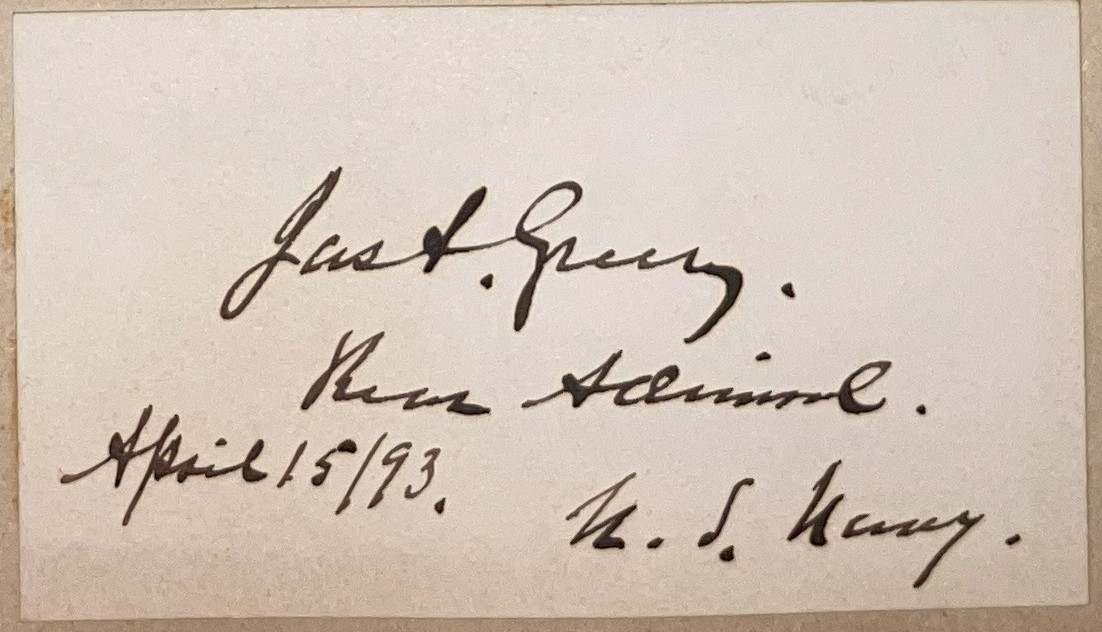 Jas A. Greer.
Rear Admiral.
April 15/93.
U. S. Navy.